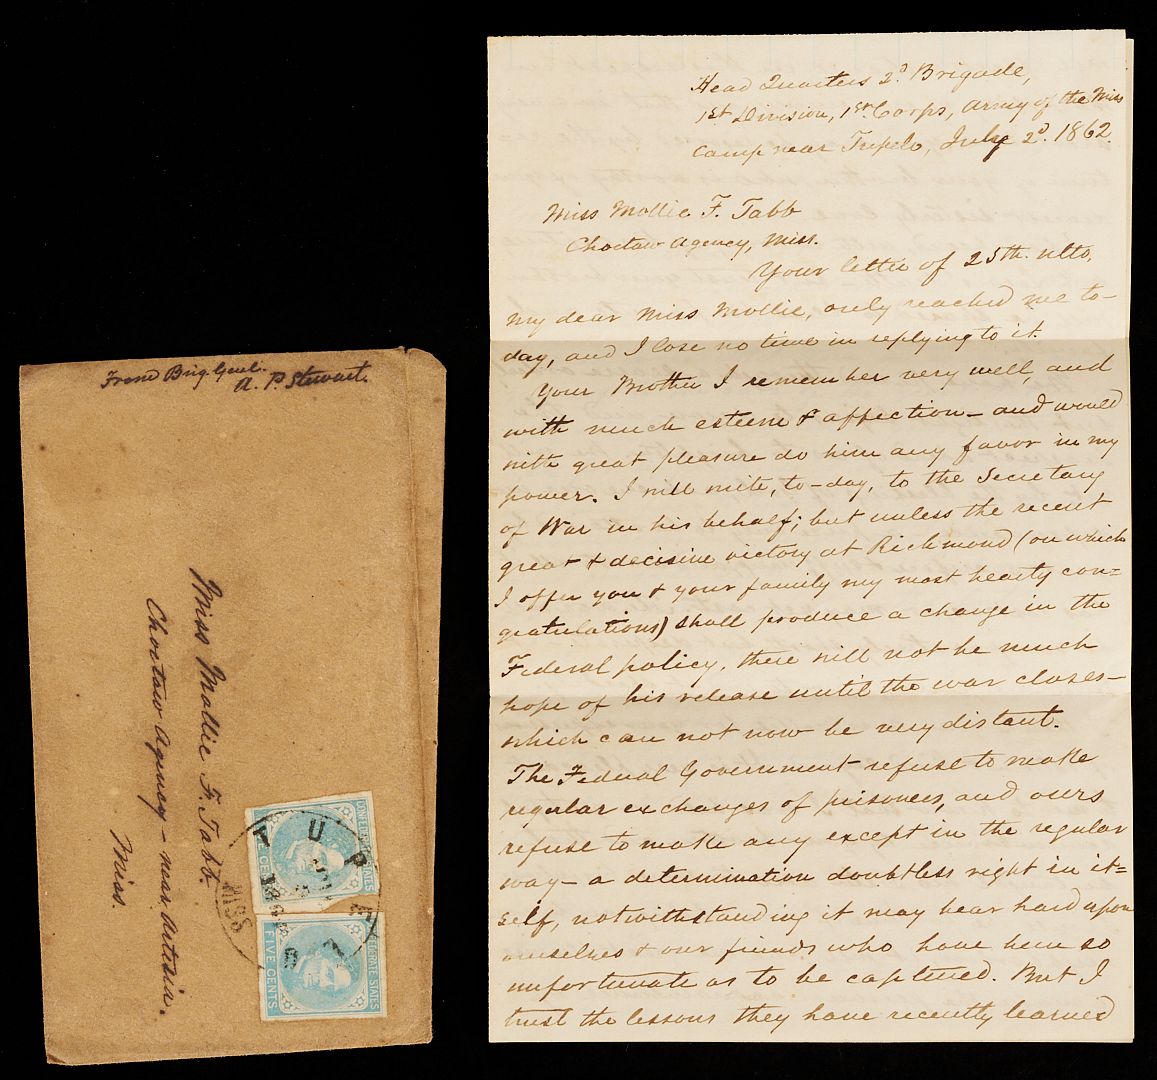 From Brig. Genl.
A. P. Stewart.
Miss Mollie F. Tabb
Choctaw Agency - near Artesia.
Miss.
TUPELO
MISS
CONFEDERATE STATES
FIVE CENTS
CONFEDERATE STATES
FIVE CENTS
Head Quarters 2d. Brigade,
1st Division, 1st. Corps, Army of the Miss
Camp near Tupelo, July 2d. 1862.
Miss Mollie F. Tabb
Choctaw Agency, Miss.
Your letter of 25th. ulto,
my dear Miss Mollie, only reached me to-
day, and I lose no time in replying to it.
Your Brother I remember very well, and
with much esteem & affection - and would
with great pleasure do him any favor in my
power. I will write, to-day, to the Secretary
of War in his behalf; but unless the recent
great & decisive victory at Richmond (on which
I offer you & your family my most hearty con=
gratulations) shall produce a change in the
Federal policy, there will not be much
hope of his release until the war closes -
which can not now be very distant.
The Federal Government refuse to make
regular exchanges of prisoners, and ours
refuse to make any except in the regular
way - a determination doubtless right in it=
self, notwithstanding it may bear hard upon
ourselves & our friends who have been so
unfortunate as to be captured. But I
trust the lessons they have recently learned